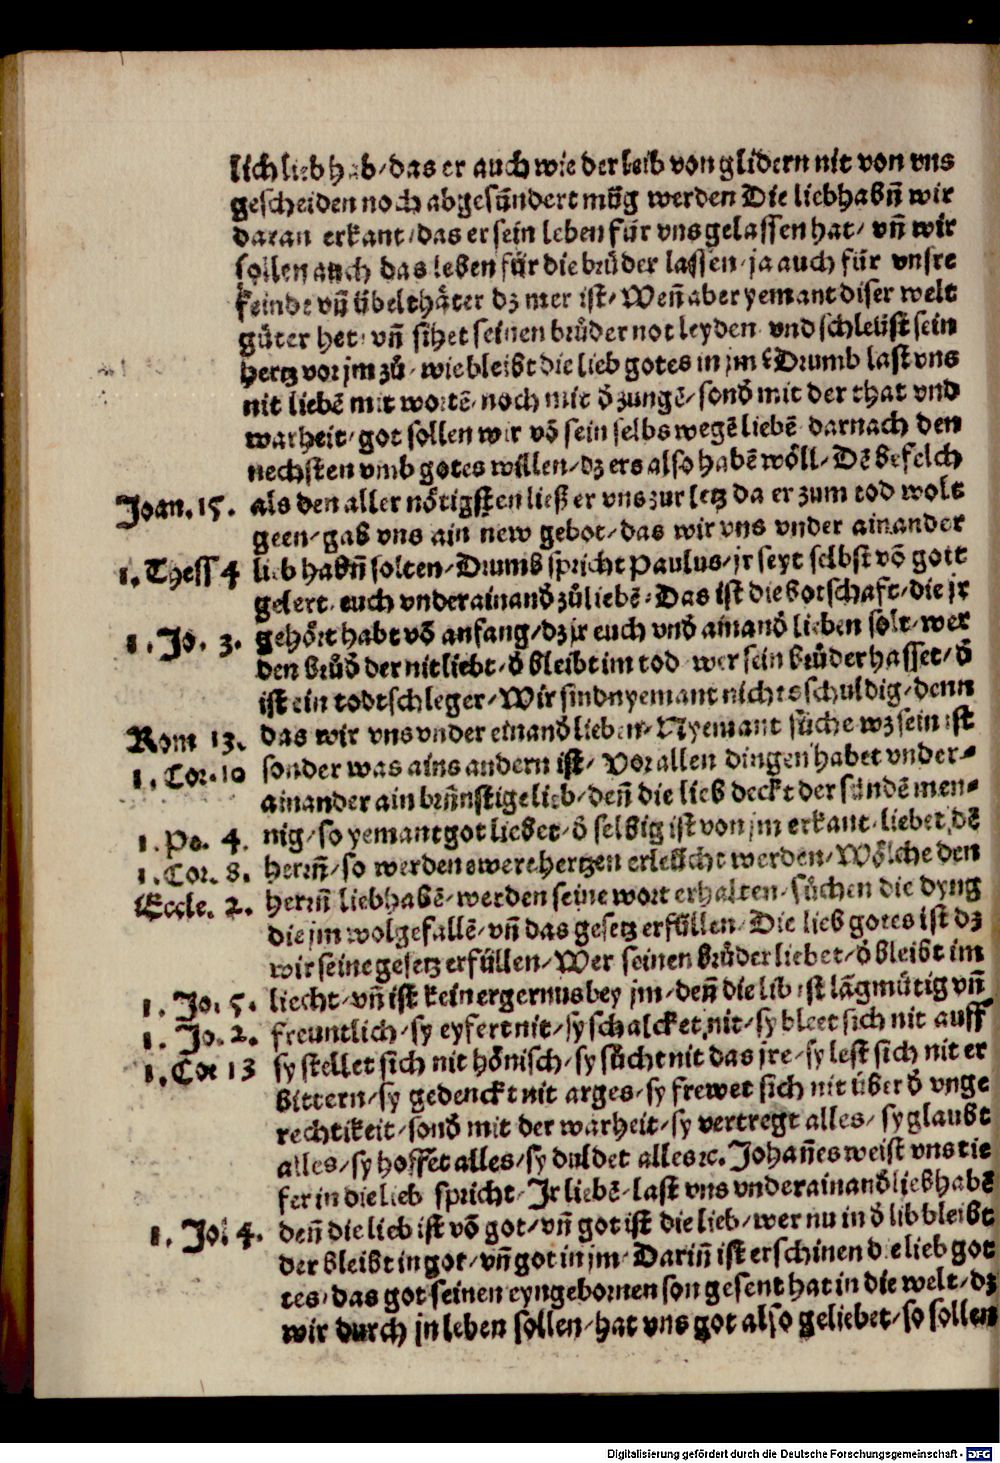 lich lieb hab / das er auch wie der leib von glidern nit von vns
gescheiden noch abgesündert mög werden Die liebhabñ wir
daran erkant / das er sein leben für vns gelassen hat / vñ wir
sollen auch das leben für die brůder lassen / ja auch für vnsre
feinde vñ übelthäter dz mer ist / Weñ aber yemant diser welt
gůter het / vñ sihet seinen brůder not leyden vnd schleüst sein
hertz vor jm zů / wie bleibt die lieb gotes in jm? Drumb last vns
nit liebē mit wortē / noch mit ď zungē / sonď mit der that vnd
warheit / got sollen wir vō sein selbs wegē liebē darnach den
nechsten vmb gotes willen / dz ers also habē wöll / Dē befelch
Joan. 15. als den aller nötigsten ließ er vns zur letz da er zum tod wolt
geen / gab vns ain new gebot / das wir vns vnder ainander
1. Thess 4 lieb habñ solten / Drumb spricht Paulus / jr seyt selbst vō gott
gelert euch vnder ainanď zůliebē / Das ist die botschaft / die jr
1. Jo. 3. gehört habt vō anfang / dz jr euch vnď ainanď lieben solt / wer
den brůď der nit liebt / ď bleibt im tod wer sein brůder hasset / ď
ist ein todtschleger / Wir sind nyemant nichts schuldig / denn
Rom 13. das wir vns vnder einanď lieben / Nyemant sůche wz sein ist
1. Cor. 10 sonder was ains andern ist / Vor allen dingen habet vnder-
ainander ain brünstige lieb / deñ die lieb deckt der sündē men-
1. Pe. 4. nig / so yemant got liebet / ď selbig ist von jm erkant / liebet dē
1. Cor. 8. herrñ / so werden ewere hertzen erleücht werden / Wölche den
Eccle. 2. herrñ liebhabē / werden seine wort erhalten / sůchen die dyng
die jm wolgefallē / vñ das gesetz erfüllen / Die lieb gotes ist dz
wir seine gesetz erfüllen / Wer seinen brůder liebet / ď bleibt im
1. Jo. 5. liecht / vñ ist kein ergernus bey jm / deñ die lib ist lāgmütig vñ
1. Jo. 2. freuntlich / sy eyfert nit / sy schalcket nit / sy bleet sich nit auff
1. Cor 13 sy stellet sich nit hönisch / sy sůcht nit das jre / sy lest sich nit er
bittern / sy gedenckt nit arges / sy frewet sich nit über ď vnge
rechtikeit / sonď mit der warheit / sy vertregt alles / sy glaubt
alles / sy hoffet alles / sy duldet alles ꝛc. Johañes weist vns tie
fer in die lieb spricht / Jr liebē / last vns vnder ainanď lieb habē
1. Jo. 4. deñ die lieb ist vō got / vñ got ist die lieb / wer nu in ď lib bleibt
der bleibt in got / vñ got in jm / Dariñ ist erschinen die lieb got
tes / das got seinen eyngebornen son gesent hat in die welt / dz
wir durch jn leben sollen / hat vns got also geliebet / so sollen
Digitalisierung gefördert durch die Deutsche Forschungsgemeinschaft - DFG